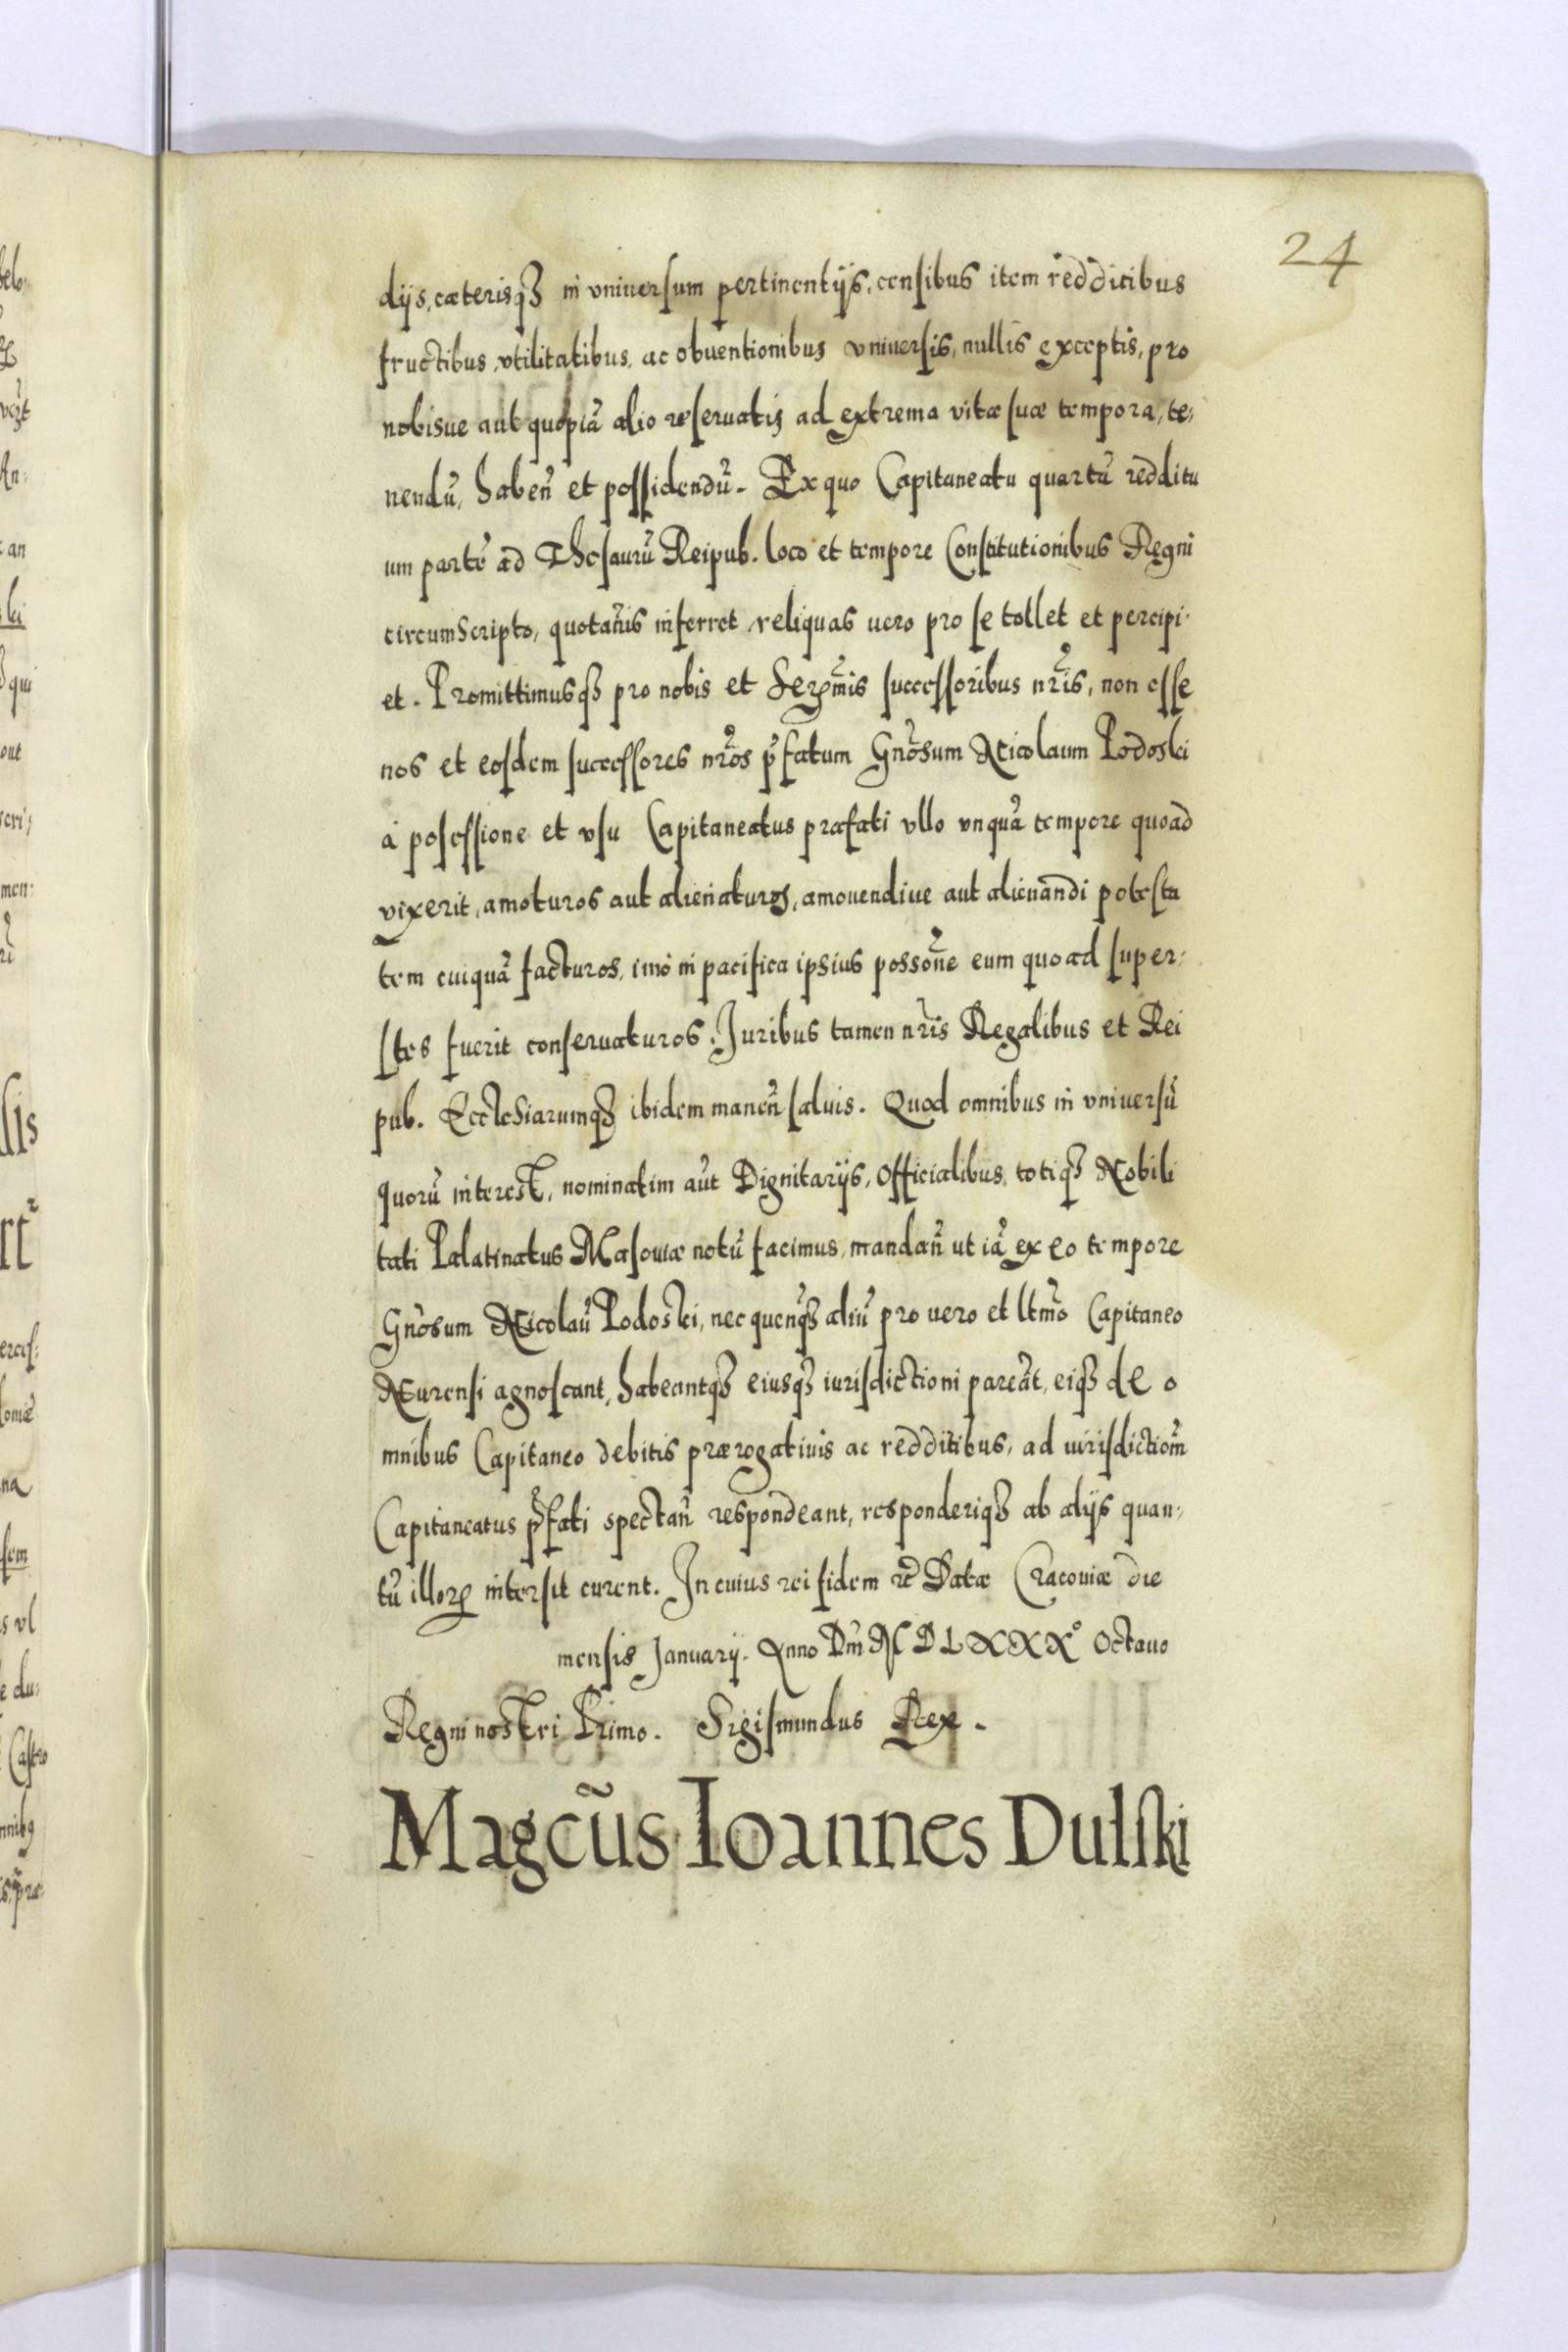 24
dijs, cæterisqȝ in vniuersum pertinentijs, censibus item redditibus
fructibus, vtilitatibus, ac obuentionibus vniuersis, nullis exceptis, pro
nobisue aut quopiã alio reseruatis ad extrema vitæ suæ tempora, te,
nendũ, habeñ et possidendũ. Ex quo Capitaneatu quartã reddita
um partẽ ad Thesaurũ Reipub. loco et tempore Constitutionibus Regni
circumscripto, quotañis inferret, reliquas uero pro se tollet et percipi.
et. Promittimusqȝ pro nobis et Serm̃is successoribus nr̃is, non esse
nos et eosdem successores nr̃os p̃fatum Gnõsum Nicolaum Podoski
à posessione et vsu Capitaneatus præfati vllo vnquã tempore quoad
vixerit, amoturos aut alienaturos, amouendiue aut alienandi potesta
tem cuiquã facturos, imò in pacifica ipsius possoñe eum quoad super:
stes fuerit conseruaturos. Juribus tamen nr̃is Regalibus et Rei
pub. Ecclesiarumqȝ ibidem maneñ saluis. Quod omnibus in vniuersũ
quorũ interest, nominatim aũt Dignitarijs, Officialibus, totiqȝ Nobili
tati Palatinatus Masouiæ notũ facimus, mandañ ut iã ex eo tempore
Gnõsum Nicolaũ Podoski, nec quenqȝ̃ aliũ pro uero et ltm̃o Capitaneo
Nurensi agnoscant, habeantqȝ eiusqȝ iurisdictioni pareãt, eiqȝ de o
mnibus Capitaneo debitis prærogatiuis ac redditibus, ad iurisdictiom̃
Capitaneatus p̃fati spectañ respondeant, responderiqȝ ab alijs quan,
tũ illorꝝ intersit curent. In cuius rei fidem etc̃ Datæ Cracouiæ die
mensis Januarij. Anno Dm̃ M D L XXX° Octauo
Regni nostri Primo. Sigismundus Rex.
Magcũs Ioannes Dulski